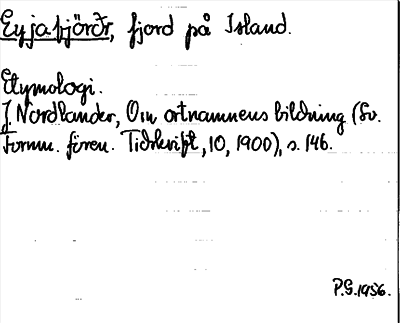 Eyjafjörðr, fjord på Island.
Etymologi.
J. Nordlander, Om ortnamnens bildning (Sv.
Fornm. fören. Tidskrift, 10, 1900), s. 146.
P.G. 1956.